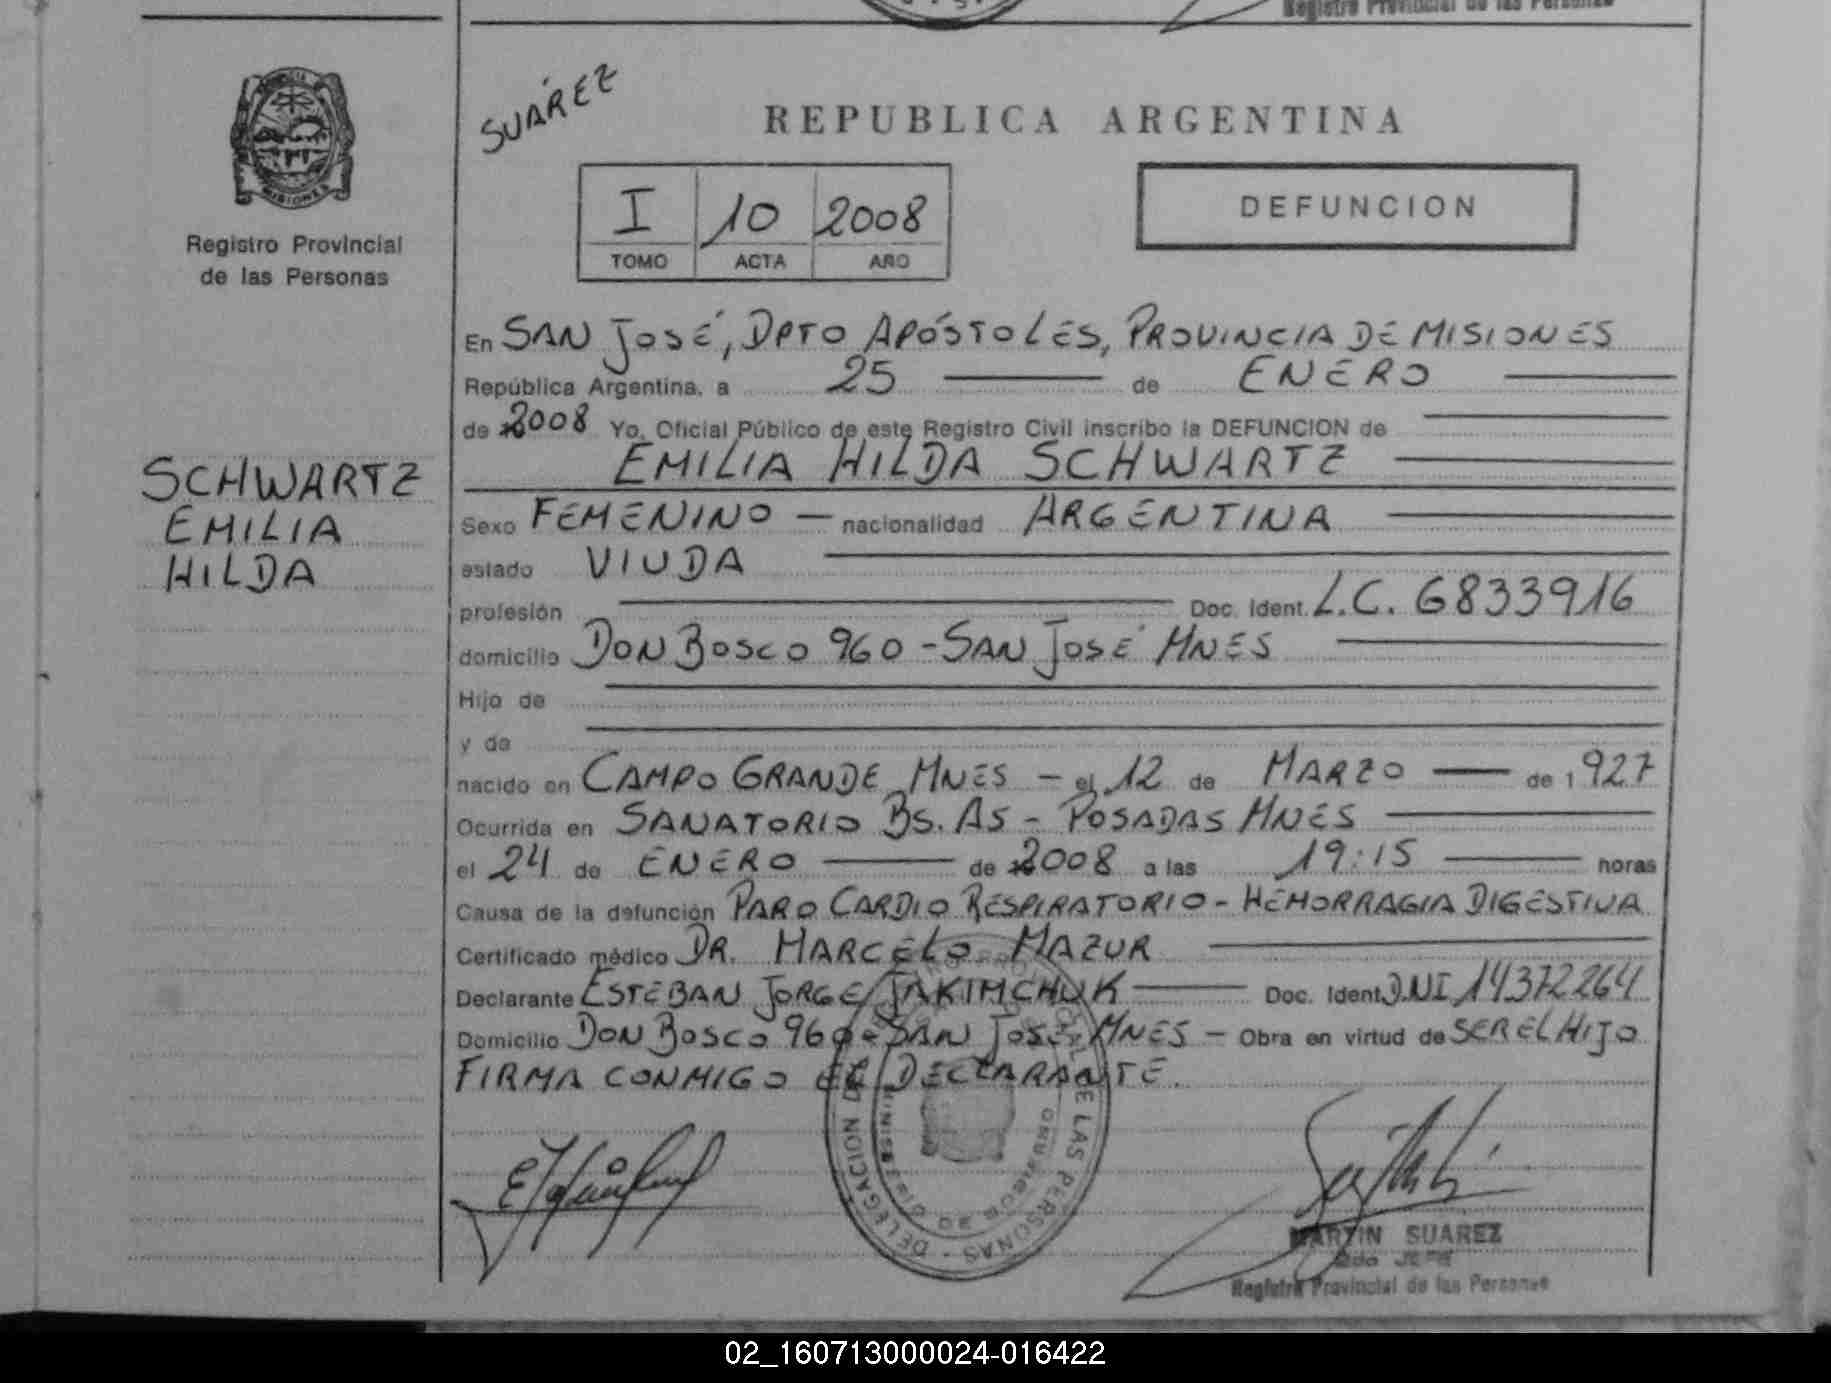 Registro Provincial de las Personas
PROVINCIA
MISIONES
Registro Provincial
de las Personas
SCHWARTZ
EMILIA
HILDA
SUÁREZ
REPUBLICA ARGENTINA
I 10 2008
TOMO ACTA AÑO
DEFUNCION
En SAN JOSÉ, DPTO APÓSTOLES, PROVINCIA DE MISIONES
República Argentina, a 25 de ENERO
de 2008 Yo, Oficial Público de este Registro Civil inscribo la DEFUNCION de
EMILIA HILDA SCHWARTZ
Sexo FEMENINO — nacionalidad ARGENTINA
estado VIUDA
profesión Doc. Ident. L.C. 6833916
domicilio DON BOSCO 960 - SAN JOSÉ MNES
Hijo de
y de
nacido en CAMPO GRANDE MNES - el 12 de MARZO — de 1927
Ocurrida en SANATORIO BS. AS - POSADAS MNES
el 24 de ENERO — de 2008 a las 19:15 — horas
Causa de la defunción PARO CARDIO RESPIRATORIO - HEMORRAGIA DIGESTIVA
Certificado médico DR. MARCELO MAZUR
Declarante ESTEBAN JORGE JAKIMCHUK — Doc. Ident. D.NI 14372264
Domicilio DON BOSCO 960 - SAN JOSE MNES - Obra en virtud de SER EL HIJO
FIRMA CONMIGO EL DECLARANTE.
DELEGACION DE LAS PERSONAS
MINISTERIO DE GOBIERNO
MARTIN SUAREZ
2do JEFE
Registro Provincial de las Personas
02_160713000024-016422